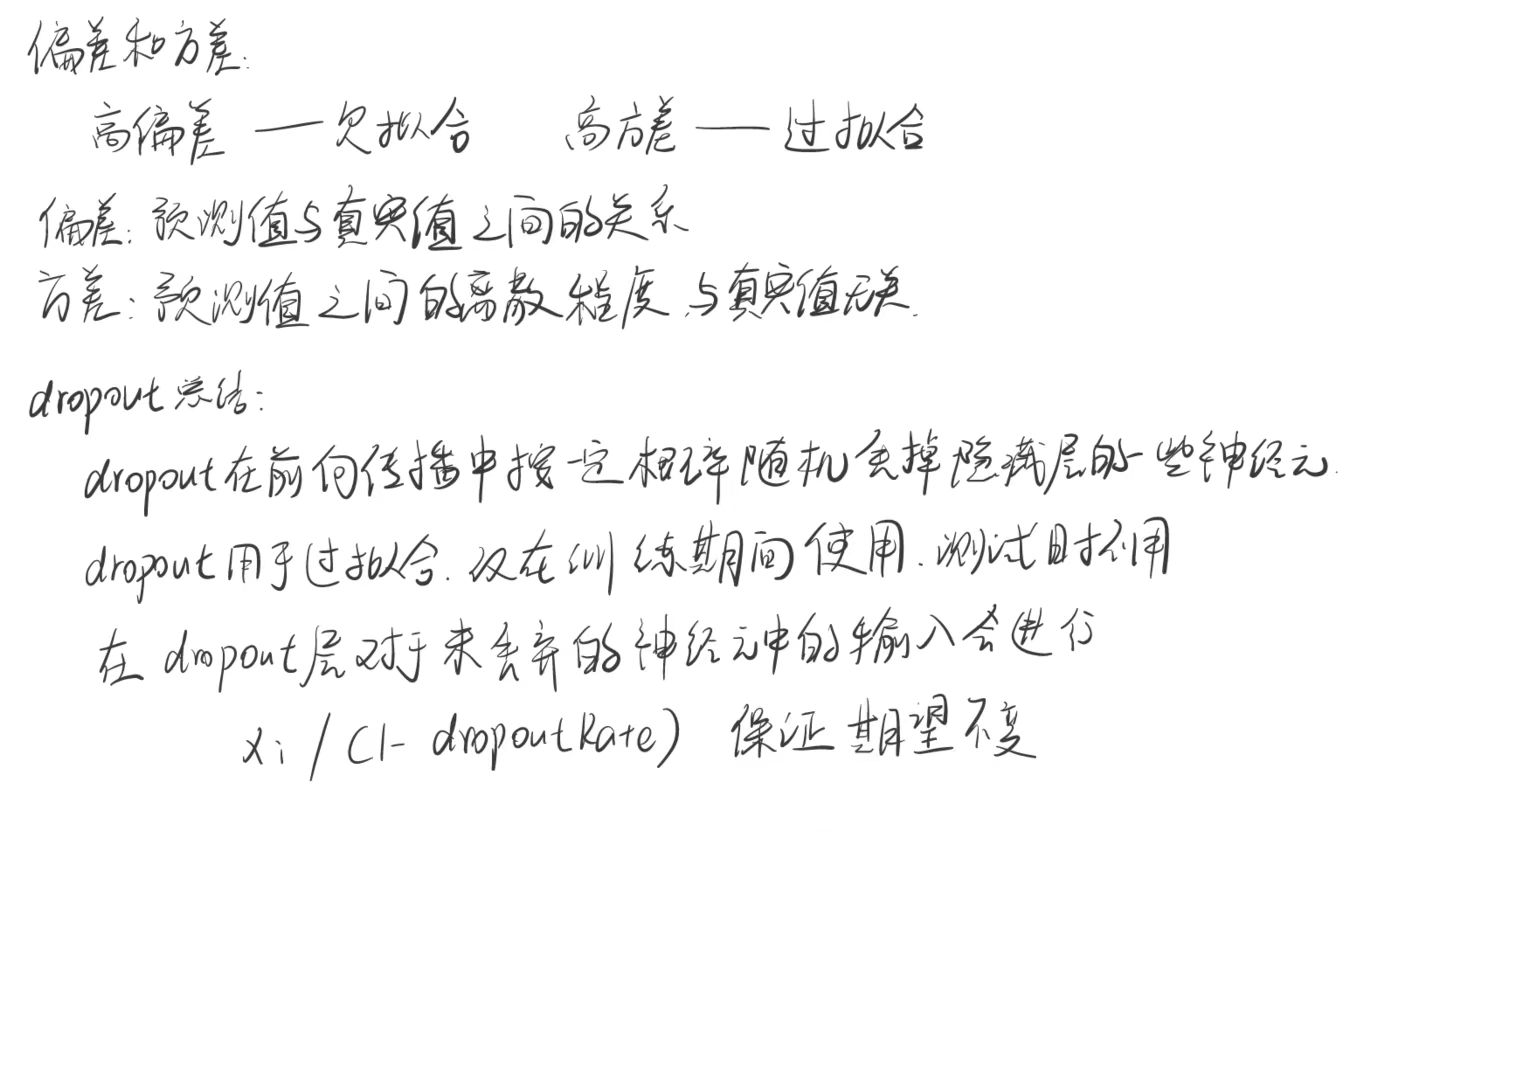 偏差和方差:
高偏差 —— 欠拟合 高方差 —— 过拟合
偏差: 预测值与真实值之间的关系
方差: 预测值之间的离散程度,与真实值无关.
dropout总结:
dropout在前向传播中按一定概率随机丢掉隐藏层的一些神经元.
dropout用于过拟合.仅在训练期间使用.测试时不用
在dropout层对于未丢弃的神经元中的输入会进行
xi / (1- dropoutRate) 保证期望不变